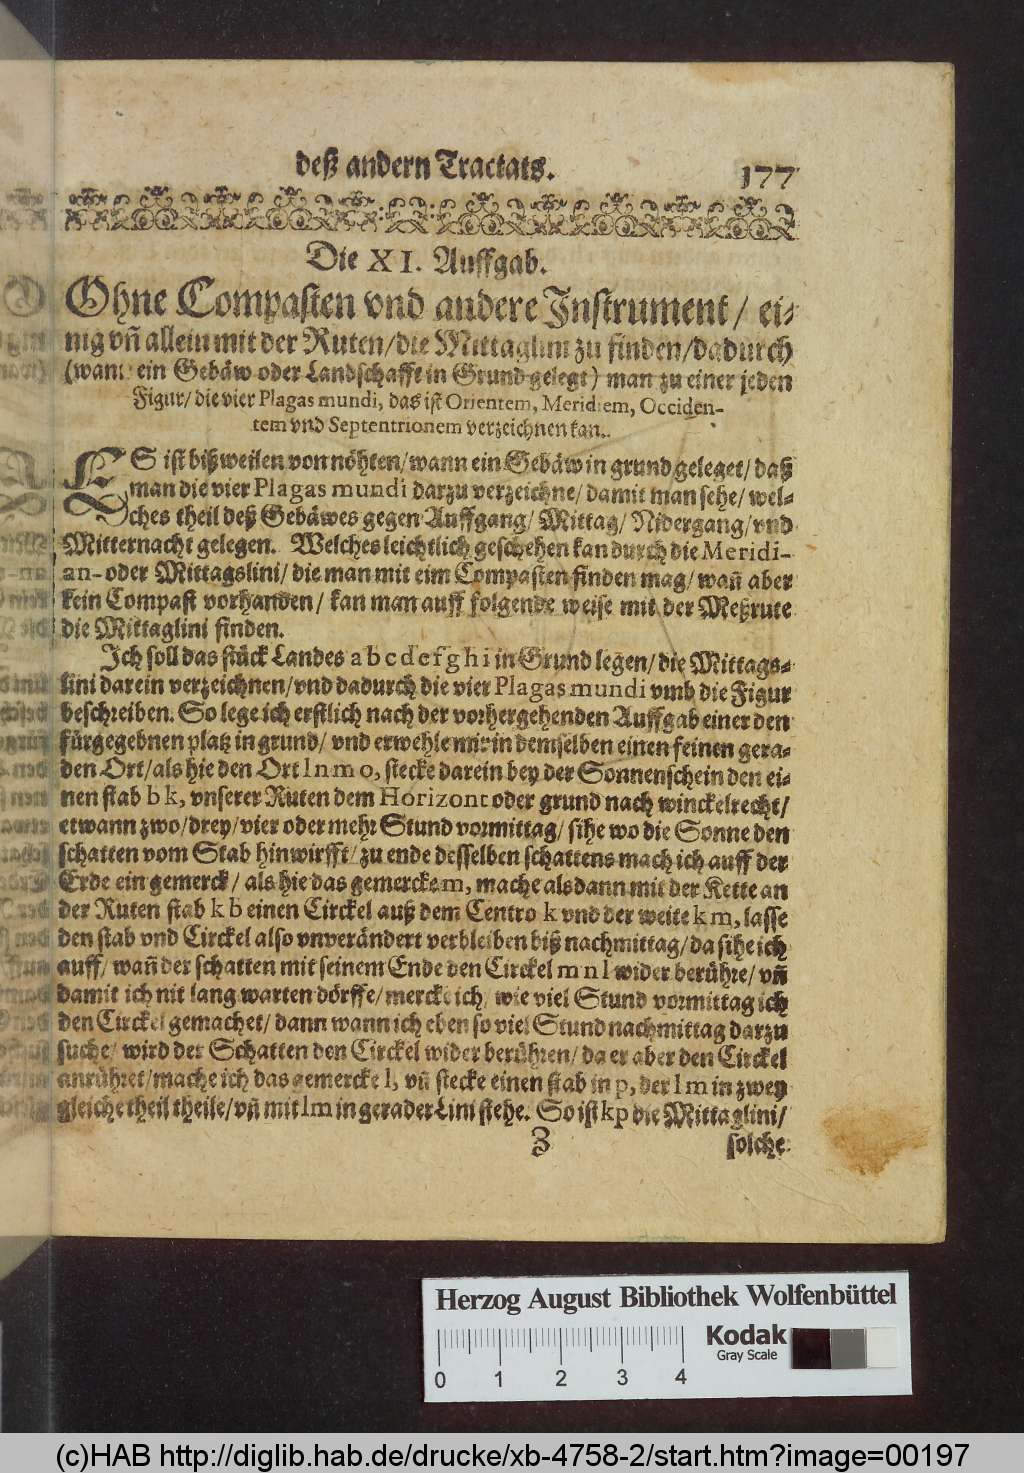 deß andern Tractats. 177
Die XI. Auffgab.
Ohne Compasten vnd andere Instrument / ei-
nig vñ allein mit der Ruten / die Mittaglini zu finden / dadurch
(wann ein Gebäw oder Landschafft in Grund gelegt) man zu einer jeden
Figur / die vier Plagas mundi, das ist Orientem, Meridiem, Occiden-
tem vnd Septentrionem verzeichnen kan.
ES ist bißweilen von nöhten / wann ein Gebäw in grund geleget / daß
man die vier Plagas mundi darzu verzeichne / damit man sehe / wel-
ches theil deß Gebäwes gegen Auffgang / Mittag / Nidergang / vnd
Mitternacht gelegen. Welches leichtlich geschehen kan durch die Meridi-
an- oder Mittagslini / die man mit eim Compasten finden mag / wañ aber
kein Compast vorhanden / kan man auff folgende weise mit der Meßrute
die Mittaglini finden.
Ich soll das stück Landes a b c d e f g h i in Grund legen / die Mittags-
lini darein verzeichnen / vnd dadurch die vier Plagas mundi vmb die Figur
beschreiben. So lege ich erstlich nach der vorhergehenden Auffgab einer den
fürgegebnen platz in grund / vnd erwehle mir in demselben einen feinen gera-
den Ort / als hie den Ort l n m o, stecke darein bey der Sonnenschein den ei-
nen stab b k, vnserer Ruten dem Horizont oder grund nach winckelrecht /
etwann zwo / drey / vier oder mehr Stund vormittag / sihe wo die Sonne den
schatten vom Stab hinwirfft / zu ende desselben schattens mach ich auff der
Erde ein gemerck / als hie das gemercke m, mache alsdann mit der Kette an
der Ruten stab k b einen Circkel auß dem Centro k vnd der weite k m, lasse
den stab vnd Circkel also vnverändert verbleiben biß nachmittag / da sihe ich
auff / wañ der schatten mit seinem Ende den Circkel m n l wider berühre / vñ
damit ich nit lang warten dörffe / mercke ich / wie viel Stund vormittag ich
den Circkel gemachet / dann wann ich eben so viel Stund nachmittag darzu
suche / wird der Schatten den Circkel wider berühren / da er aber den Circkel
anrühret / mache ich das gemercke l, vñ stecke einen stab in p, der l m in zwey
gleiche theil theile / vñ mit l m in gerader Lini stehe. So ist k p die Mittaglini /
Z solche
Herzog August Bibliothek Wolfenbüttel
Kodak
Gray Scale
0 1 2 3 4
(c)HAB http://diglib.hab.de/drucke/xb-4758-2/start.htm?image=00197